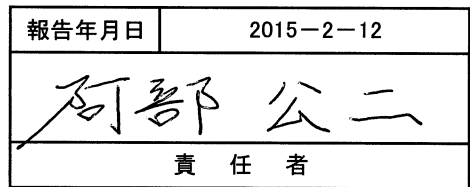 報告年月日 2015-2-12
阿部 公二
責 任 者